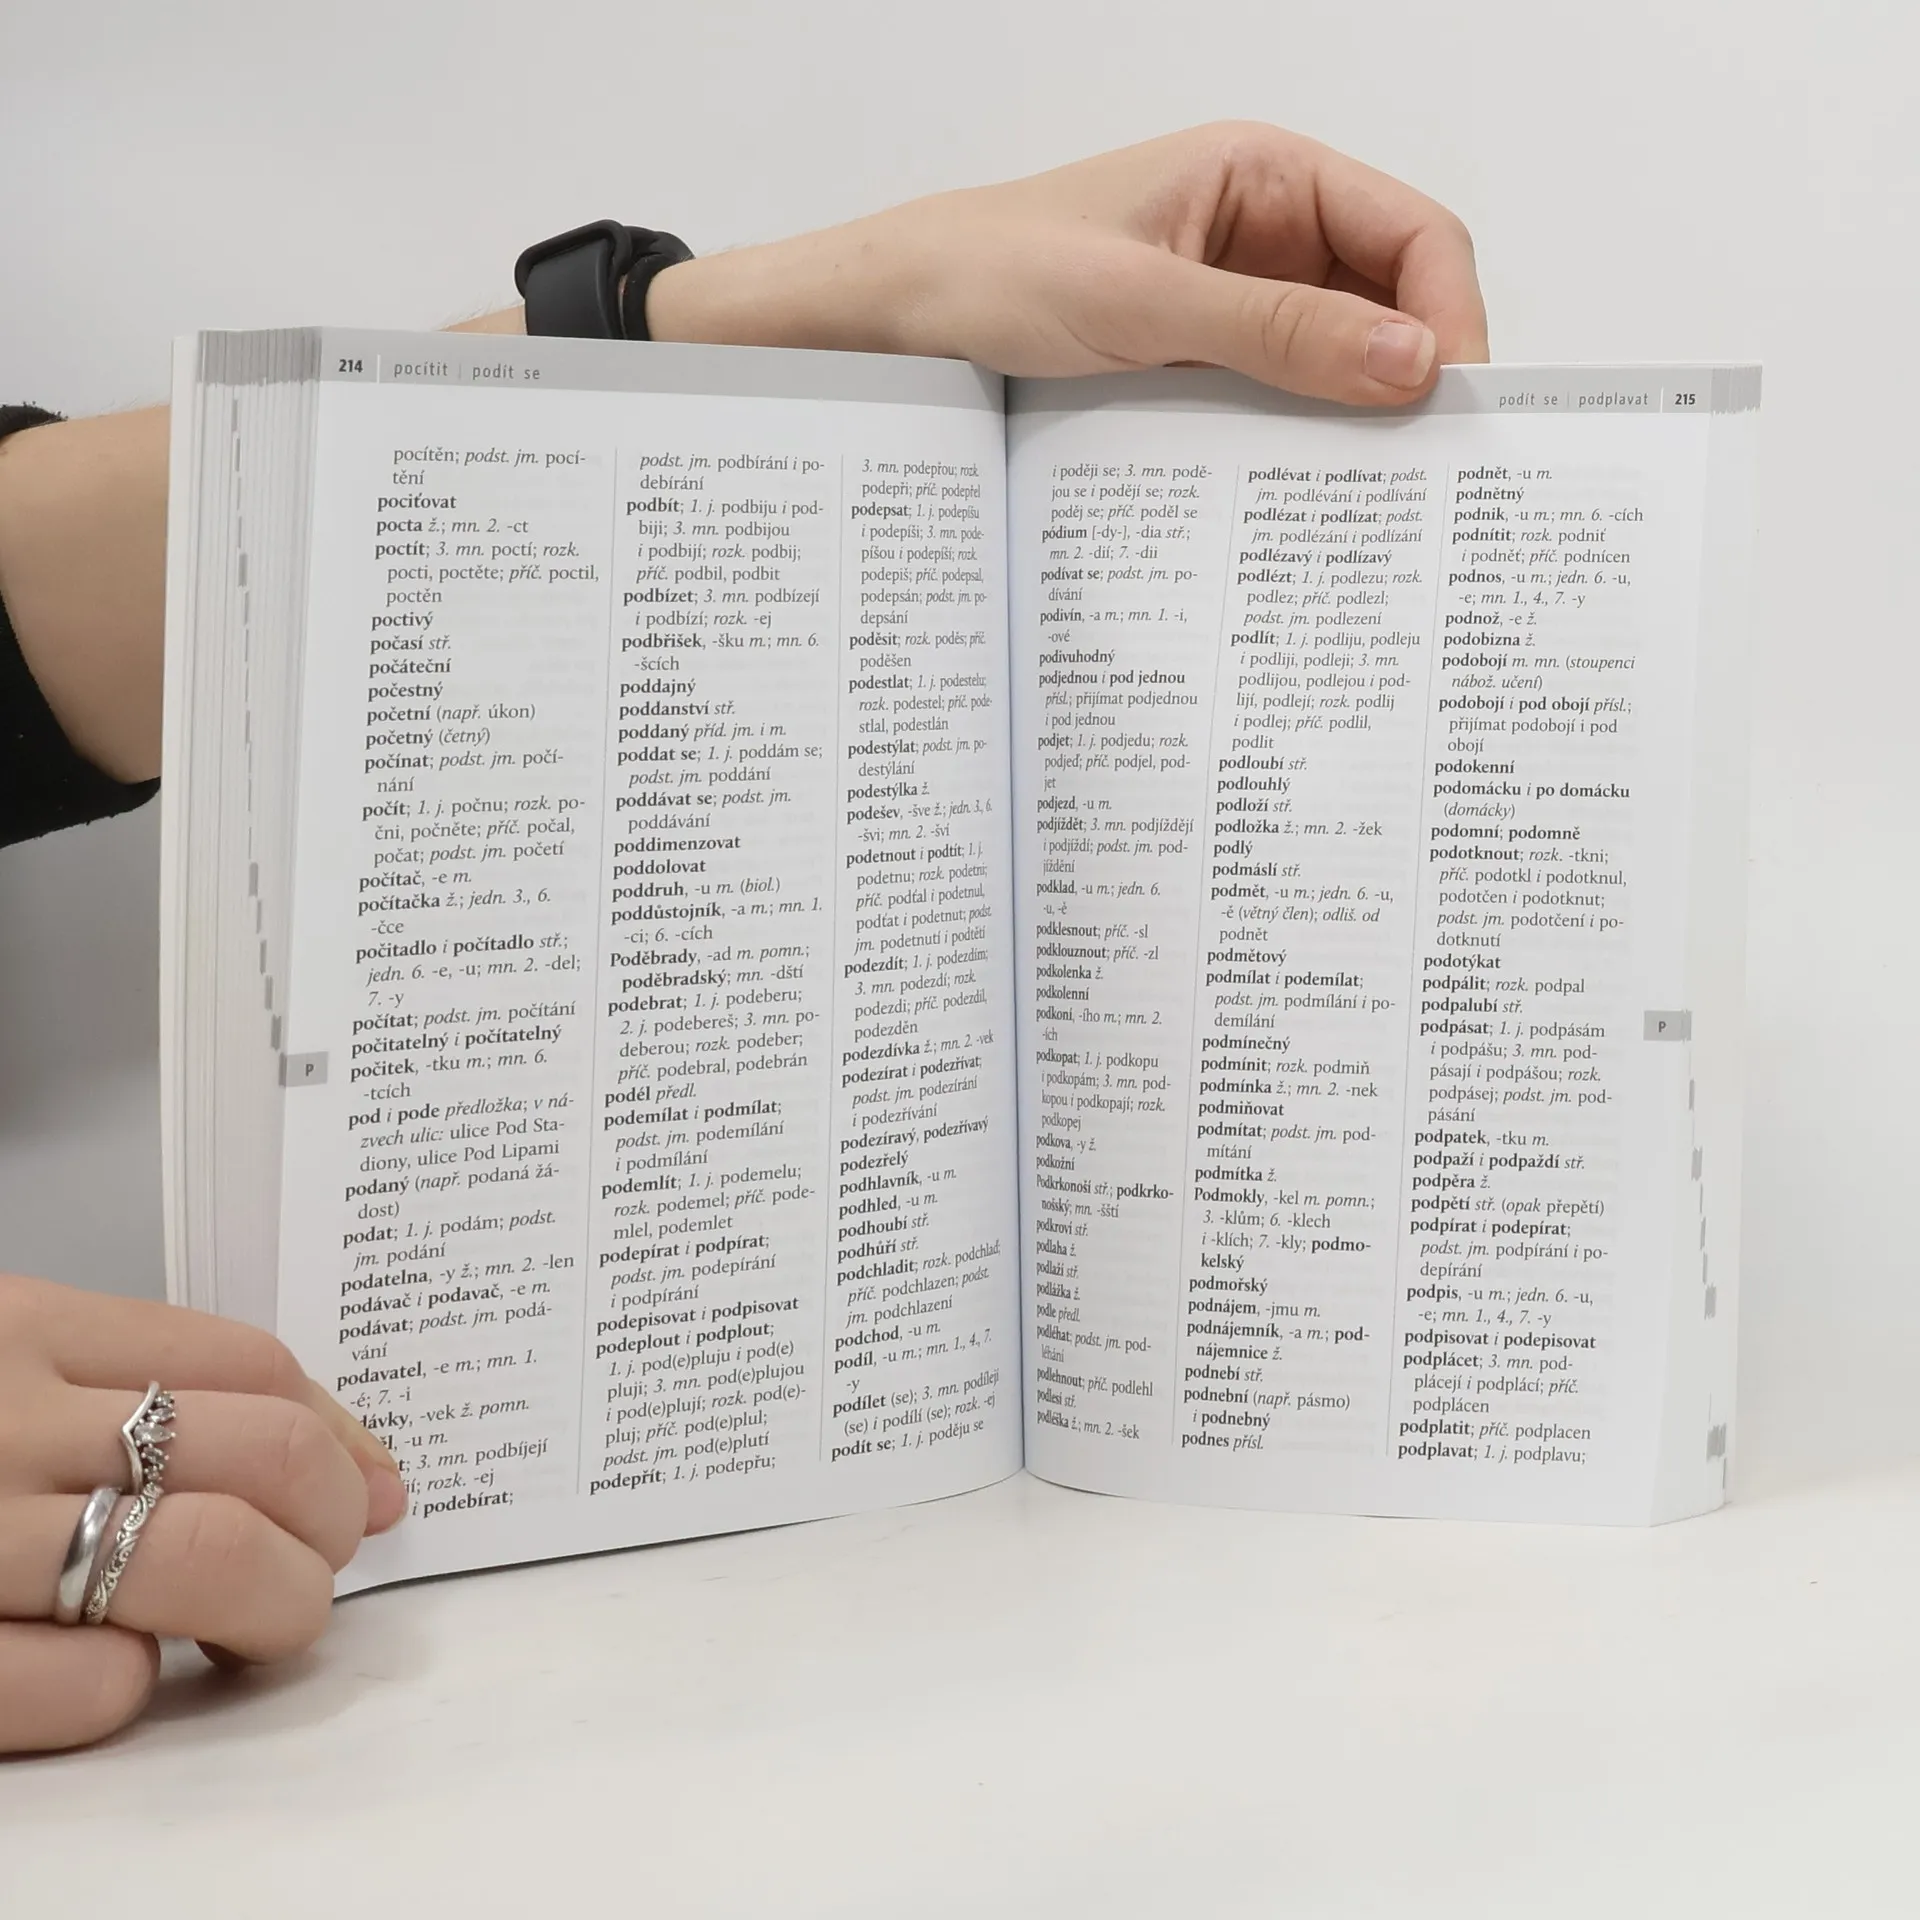 214 | pocítit | podít se
pocítěn; podst. jm. pocí-
tění
pociťovat
pocta ž.; mn. 2. -ct
poctít; 3. mn. poctí; rozk.
pocti, poctěte; příč. poctil,
poctěn
poctivý
počasí stř.
počáteční
počestný
početní (např. úkon)
početný (četný)
počínat; podst. jm. počí-
nání
počít; 1. j. počnu; rozk. po-
čni, počněte; příč. počal,
počat; podst. jm. početí
počítač, -e m.
počítačka ž.; jedn. 3., 6.
-čce
počitadlo i počítadlo stř.;
jedn. 6. -e, -u; mn. 2. -del;
7. -y
počítat; podst. jm. počítání
počitatelný i počítatelný
počitek, -tku m.; mn. 6.
-tcích
pod i pode předložka; v ná-
zvech ulic: ulice Pod Sta-
diony, ulice Pod Lipami
podaný (např. podaná žá-
dost)
podat; 1. j. podám; podst.
jm. podání
podatelna, -y ž.; mn. 2. -len
podávač i podavač, -e m.
podávat; podst. jm. podá-
vání
podavatel, -e m.; mn. 1.
-é; 7. -i
-vek ž. pomn.
-u m.
3. mn. podbíjejí
rozk. -ej
i podebírat;
podst. jm. podbírání i po-
debírání
podbít; 1. j. podbiju i pod-
biji; 3. mn. podbijou
i podbijí; rozk. podbij;
příč. podbil, podbit
podbízet; 3. mn. podbízejí
i podbízí; rozk. -ej
podbřišek, -šku m.; mn. 6.
-šcích
poddajný
poddanství stř.
poddaný příd. jm. i m.
poddat se; 1. j. poddám se;
podst. jm. poddání
poddávat se; podst. jm.
poddávání
poddimenzovat
poddolovat
poddruh, -u m. (biol.)
poddůstojník, -a m.; mn. 1.
-ci; 6. -cích
Poděbrady, -ad m. pomn.;
poděbradský; mn. -dští
podebrat; 1. j. podeberu;
2. j. podebereš; 3. mn. po-
deberou; rozk. podeber;
příč. podebral, podebrán
podél předl.
podemílat i podmílat;
podst. jm. podemílání
i podmílání
podemlít; 1. j. podemelu;
rozk. podemel; příč. pode-
mlel, podemlet
podepírat i podpírat;
podst. jm. podepírání
i podpírání
podepisovat i podpisovat
podeplout i podplout;
1. j. pod(e)pluju i pod(e)
pluji; 3. mn. pod(e)plujou
i pod(e)plují; rozk. pod(e)-
pluj; příč. pod(e)plul;
podst. jm. pod(e)plutí
podepřít; 1. j. podepřu;
3. mn. podepřou; rozk.
podepři; příč. podepřel
podepsat; 1. j. podepíšu
i podepíši; 3. mn. pode-
píšou i podepíší; rozk.
podepiš; příč. podepsal,
podepsán; podst. jm. po-
depsání
poděsit; rozk. poděs; příč.
poděšen
podestlat; 1. j. podestelu;
rozk. podestel; příč. pode-
stlal, podestlán
podestýlat; podst. jm. po-
destýlání
podestýlka ž.
podešev, -šve ž.; jedn. 3., 6.
-švi; mn. 2. -šví
podetnout i podtít; 1. j.
podetnu; rozk. podetni;
příč. podťal i podetnul,
podťat i podetnut; podst.
jm. podetnutí i podtětí
podezdít; 1. j. podezdím;
3. mn. podezdí; rozk.
podezdi; příč. podezdil,
podezděn
podezdívka ž.; mn. 2. -vek
podezírat i podezřívat;
podst. jm. podezírání
i podezřívání
podezíravý, podezřívavý
podezřelý
podhlavník, -u m.
podhled, -u m.
podhoubí stř.
podhůří stř.
podchladit; rozk. podchlaď;
příč. podchlazen; podst.
jm. podchlazení
podchod, -u m.
podíl, -u m.; mn. 1., 4., 7.
-y
podílet (se); 3. mn. podílejí
(se) i podílí (se); rozk. -ej
podít se; 1. j. poděju se
P
podít se | podplavat | 215
i poději se; 3. mn. podě-
jou se i podějí se; rozk.
poděj se; příč. poděl se
pódium [-dy-], -dia stř.;
mn. 2. -dií; 7. -dii
podívat se; podst. jm. po-
dívání
podivín, -a m.; mn. 1. -i,
-ové
podivuhodný
podjednou i pod jednou
přísl.; přijímat podjednou
i pod jednou
podjet; 1. j. podjedu; rozk.
podjeď; příč. podjel, pod-
jet
podjezd, -u m.
podjíždět; 3. mn. podjíždějí
i podjíždí; podst. jm. pod-
jíždění
podklad, -u m.; jedn. 6.
-u, -ě
podklesnout; příč. -sl
podklouznout; příč. -zl
podkolenka ž.
podkolenní
podkoní, -ího m.; mn. 2.
-ích
podkopat; 1. j. podkopu
i podkopám; 3. mn. pod-
kopou i podkopají; rozk.
podkopej
podkova, -y ž.
podkožní
Podkrkonoší stř.; podkrko-
nošský; mn. -šští
podkroví stř.
podlaha ž.
podlaží stř.
podlážka ž.
podle předl.
podléhat; podst. jm. pod-
léhání
podlehnout; příč. podlehl
podlesí stř.
podléška ž.; mn. 2. -šek
podlévat i podlívat; podst.
jm. podlévání i podlívání
podlézat i podlízat; podst.
jm. podlézání i podlízání
podlézavý i podlízavý
podlézt; 1. j. podlezu; rozk.
podlez; příč. podlezl;
podst. jm. podlezení
podlít; 1. j. podliju, podleju
i podliji, podleji; 3. mn.
podlijou, podlejou i pod-
lijí, podlejí; rozk. podlij
i podlej; příč. podlil,
podlit
podloubí stř.
podlouhlý
podloží stř.
podložka ž.; mn. 2. -žek
podlý
podmáslí stř.
podmět, -u m.; jedn. 6. -u,
-ě (větný člen); odliš. od
podnět
podmětový
podmílat i podemílat;
podst. jm. podmílání i po-
demílání
podmínečný
podmínit; rozk. podmiň
podmínka ž.; mn. 2. -nek
podmiňovat
podmítat; podst. jm. pod-
mítání
podmítka ž.
Podmokly, -kel m. pomn.;
3. -klům; 6. -klech
i -klích; 7. -kly; podmo-
kelský
podmořský
podnájem, -jmu m.
podnájemník, -a m.; pod-
nájemnice ž.
podnebí stř.
podnební (např. pásmo)
i podnebný
podnes přísl.
podnět, -u m.
podnětný
podnik, -u m.; mn. 6. -cích
podnítit; rozk. podniť
i podněť; příč. podnícen
podnos, -u m.; jedn. 6. -u,
-e; mn. 1., 4., 7. -y
podnož, -e ž.
podobizna ž.
podobojí m. mn. (stoupenci
nábož. učení)
podobojí i pod obojí přísl.;
přijímat podobojí i pod
obojí
podokenní
podomácku i po domácku
(domácky)
podomní; podomně
podotknout; rozk. -tkni;
příč. podotkl i podotknul,
podotčen i podotknut;
podst. jm. podotčení i po-
dotknutí
podotýkat
podpálit; rozk. podpal
podpalubí stř.
podpásat; 1. j. podpásám
i podpášu; 3. mn. pod-
pásají i podpášou; rozk.
podpásej; podst. jm. pod-
pásání
podpatek, -tku m.
podpaží i podpaždí stř.
podpěra ž.
podpětí stř. (opak přepětí)
podpírat i podepírat;
podst. jm. podpírání i po-
depírání
podpis, -u m.; jedn. 6. -u,
-e; mn. 1., 4., 7. -y
podpisovat i podepisovat
podplácet; 3. mn. pod-
plácejí i podplácí; příč.
podplácen
podplatit; příč. podplacen
podplavat; 1. j. podplavu;
P